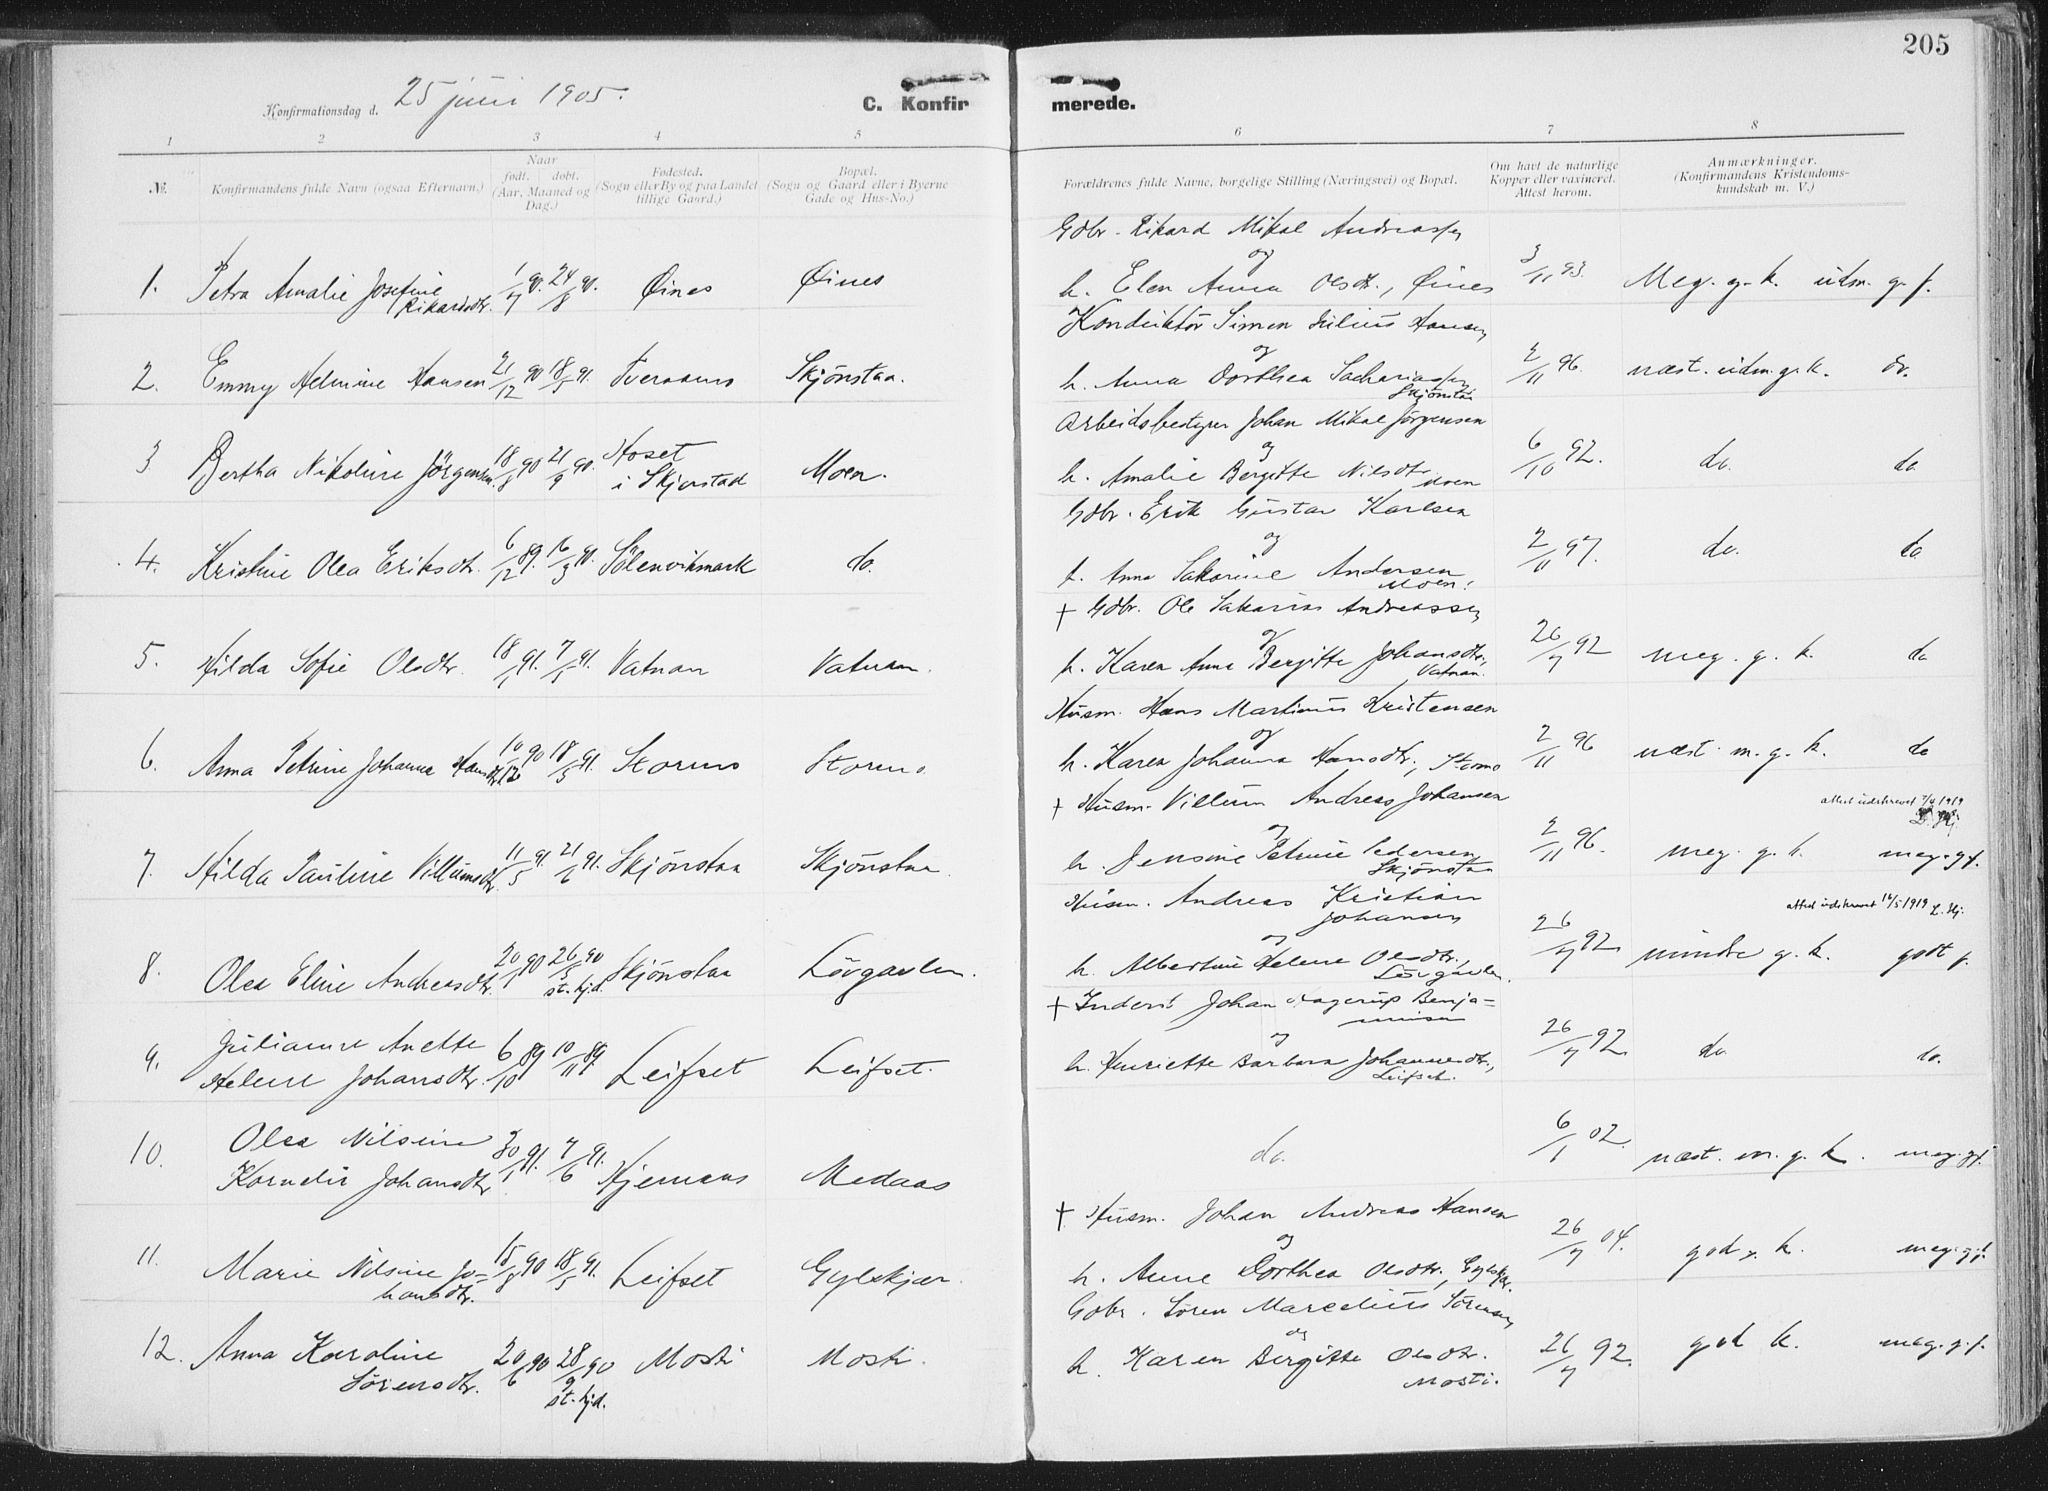 205
Konfirmationsdag d. 25 juni 1905.
C. Konfir merede.
1 2 3 4 5 6 7 8
No. Konfirmandens fulde Navn (ogsaa Efternavn.) Naar født. døbt. (Aar, Maaned og Dag.) Fødested. (Sogn eller By og paa Landet tillige Gaard.) Bopæl. (Sogn og Gaard eller i Byerne Gade og Hus-No.) Forældrenes fulde Navne, borgelige Stilling (Næringsvei) og Bopæl. Om havt de naturlige Kopper eller vaxineret. Attest herom. Anmærkninger. (Konfirmandens Kristendomskundskab m. V.)
Gdbr. Rikard Mikal Andreassen
og
1. Petra Amalie Josefine Rikardsdtr. 1/7 90. 24/8 90. Øines Øines h. Elen Anna Olsdtr., Øines 3/11 93. Meg. g. k. udm. g. f.
Konduktør Simon Julius Hansen
og
2. Emmy Helmine Hansen 21/12 90 18/5 91. Tveraanes Skjönstaa. h. Anna Dorthea Sachariassen Skjönstaa 2/11 96. næst. udm. g. k. do.
Arbeidsbestyrer Johan Mikal Jörgensen
og
3 Bertha Nikoline Jörgensen. 18/8 90 21/9 90. Hoset i Skjerstad Moen. h. Amalie Bergitte Nilsdtr. Moen 6/10 92. do. do
Gdbr. Erik Gustav Karlsen
og
4. Kristine Olea Eriksdtr. 6/12 89. 16/3 90. Sölenvikmark do. h. Anna Sakarine Andersen Moen. 2/11 97. do. do
† Gdbr. Ole Sakarias Andreassen
og
5. Hilda Sofie Olsdtr. 18/1 91. 7/5 91. Vatnan Vatnan. h. Karen Anna Bergitte Johansdtr., Vatnan. 26/7 92 meg. g. k. do
Husm. Hans Martinus Kristensen
og
6. Anna Petrine Johanna Hansdtr. 10/12 90 18/5 91. Stormo Stormo h. Karen Johanna Hansdtr., Stormo 2/11 96 næst m. g. k. do
† Husm. Villum Andreas Johansen attest udskrevet 7/4 1919
og L. Hj.
7. Hilda Pauline Villumsdtr. 11/5 91. 21/6 91. Skjönstaa Skjönstaa. h. Jensine Petrine Pedersen Skjönstaa 2/11 96. meg. g. k. meg. g. f.
Husm. Andreas Kristian Johansen attest udskrevet 12/5 1919 L. Hj.
og
8. Olea Eline Andreasdtr. 20/1 90 26/5 90 st. hjd. Skjönstaa Lövgavlen. h. Albertine Helene Olsdtr., Lövgavlen. 26/7 92 mindre g. k. godt f.
† Inders. Johan Hagerup Benjaminsen
og
9. Julianne Anette Helene Johansdtr. 6/10 89 10/11 89. Leifset Leifset. h. Henriette Barbara Johannesdtr., Leifset. 26/7 92 do do.
10. Olea Nilsine Kornelie Johansdtr. 30/1 91. 7/6 91. Hjemaas Medaas do. 6/1 02. næst. m. g. k. meg. g. f.
† Husm. Johan Andreas Hansen
og
11. Marie Nilsine Johansdtr. 15/8 90 18/5 91. Leifset Gylskjær. h. Anne Dorthea Olsdtr., Gylskjær. 26/7 04. god k. meg. g. f.
Gdbr. Sören Marcelius Sörensen
og
12. Anna Karoline Sörensdtr. 20/6 90 28/9 90 st. hjd. Mosti Mosti. h. Karen Bergitte Olsdtr. Mosti. 26/7 92. god k. meg. g. f.